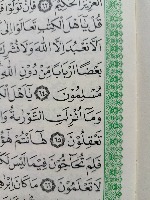 الْعَزِيزُ الْحَكِيمُ ﴿٦٢﴾ فَإِن تَوَلَّوْا
قُلْ يَٰٓأَهْلَ الْكِتَٰبِ تَعَالَوْا إِلَىٰ
أَلَّا نَعْبُدَ إِلَّا اللَّهَ وَلَا نُشْرِكَ
بَعْضًا أَرْبَابًا مِّن دُونِ اللَّهِ
مُسْلِمُونَ ﴿٦٤﴾ يَٰٓأَهْلَ
وَمَآ أُنزِلَتِ التَّوْرَىٰةُ وَ
تَعْقِلُونَ ﴿٦٥﴾ هَٰٓأَنتُمْ هَٰٓؤُ
فَلِمَ تُحَآجُّونَ فِيمَا لَيْسَ لَكُم
لَا تَعْلَمُونَ ﴿٦٦﴾ مَا كَانَ إِبْرَٰهِ